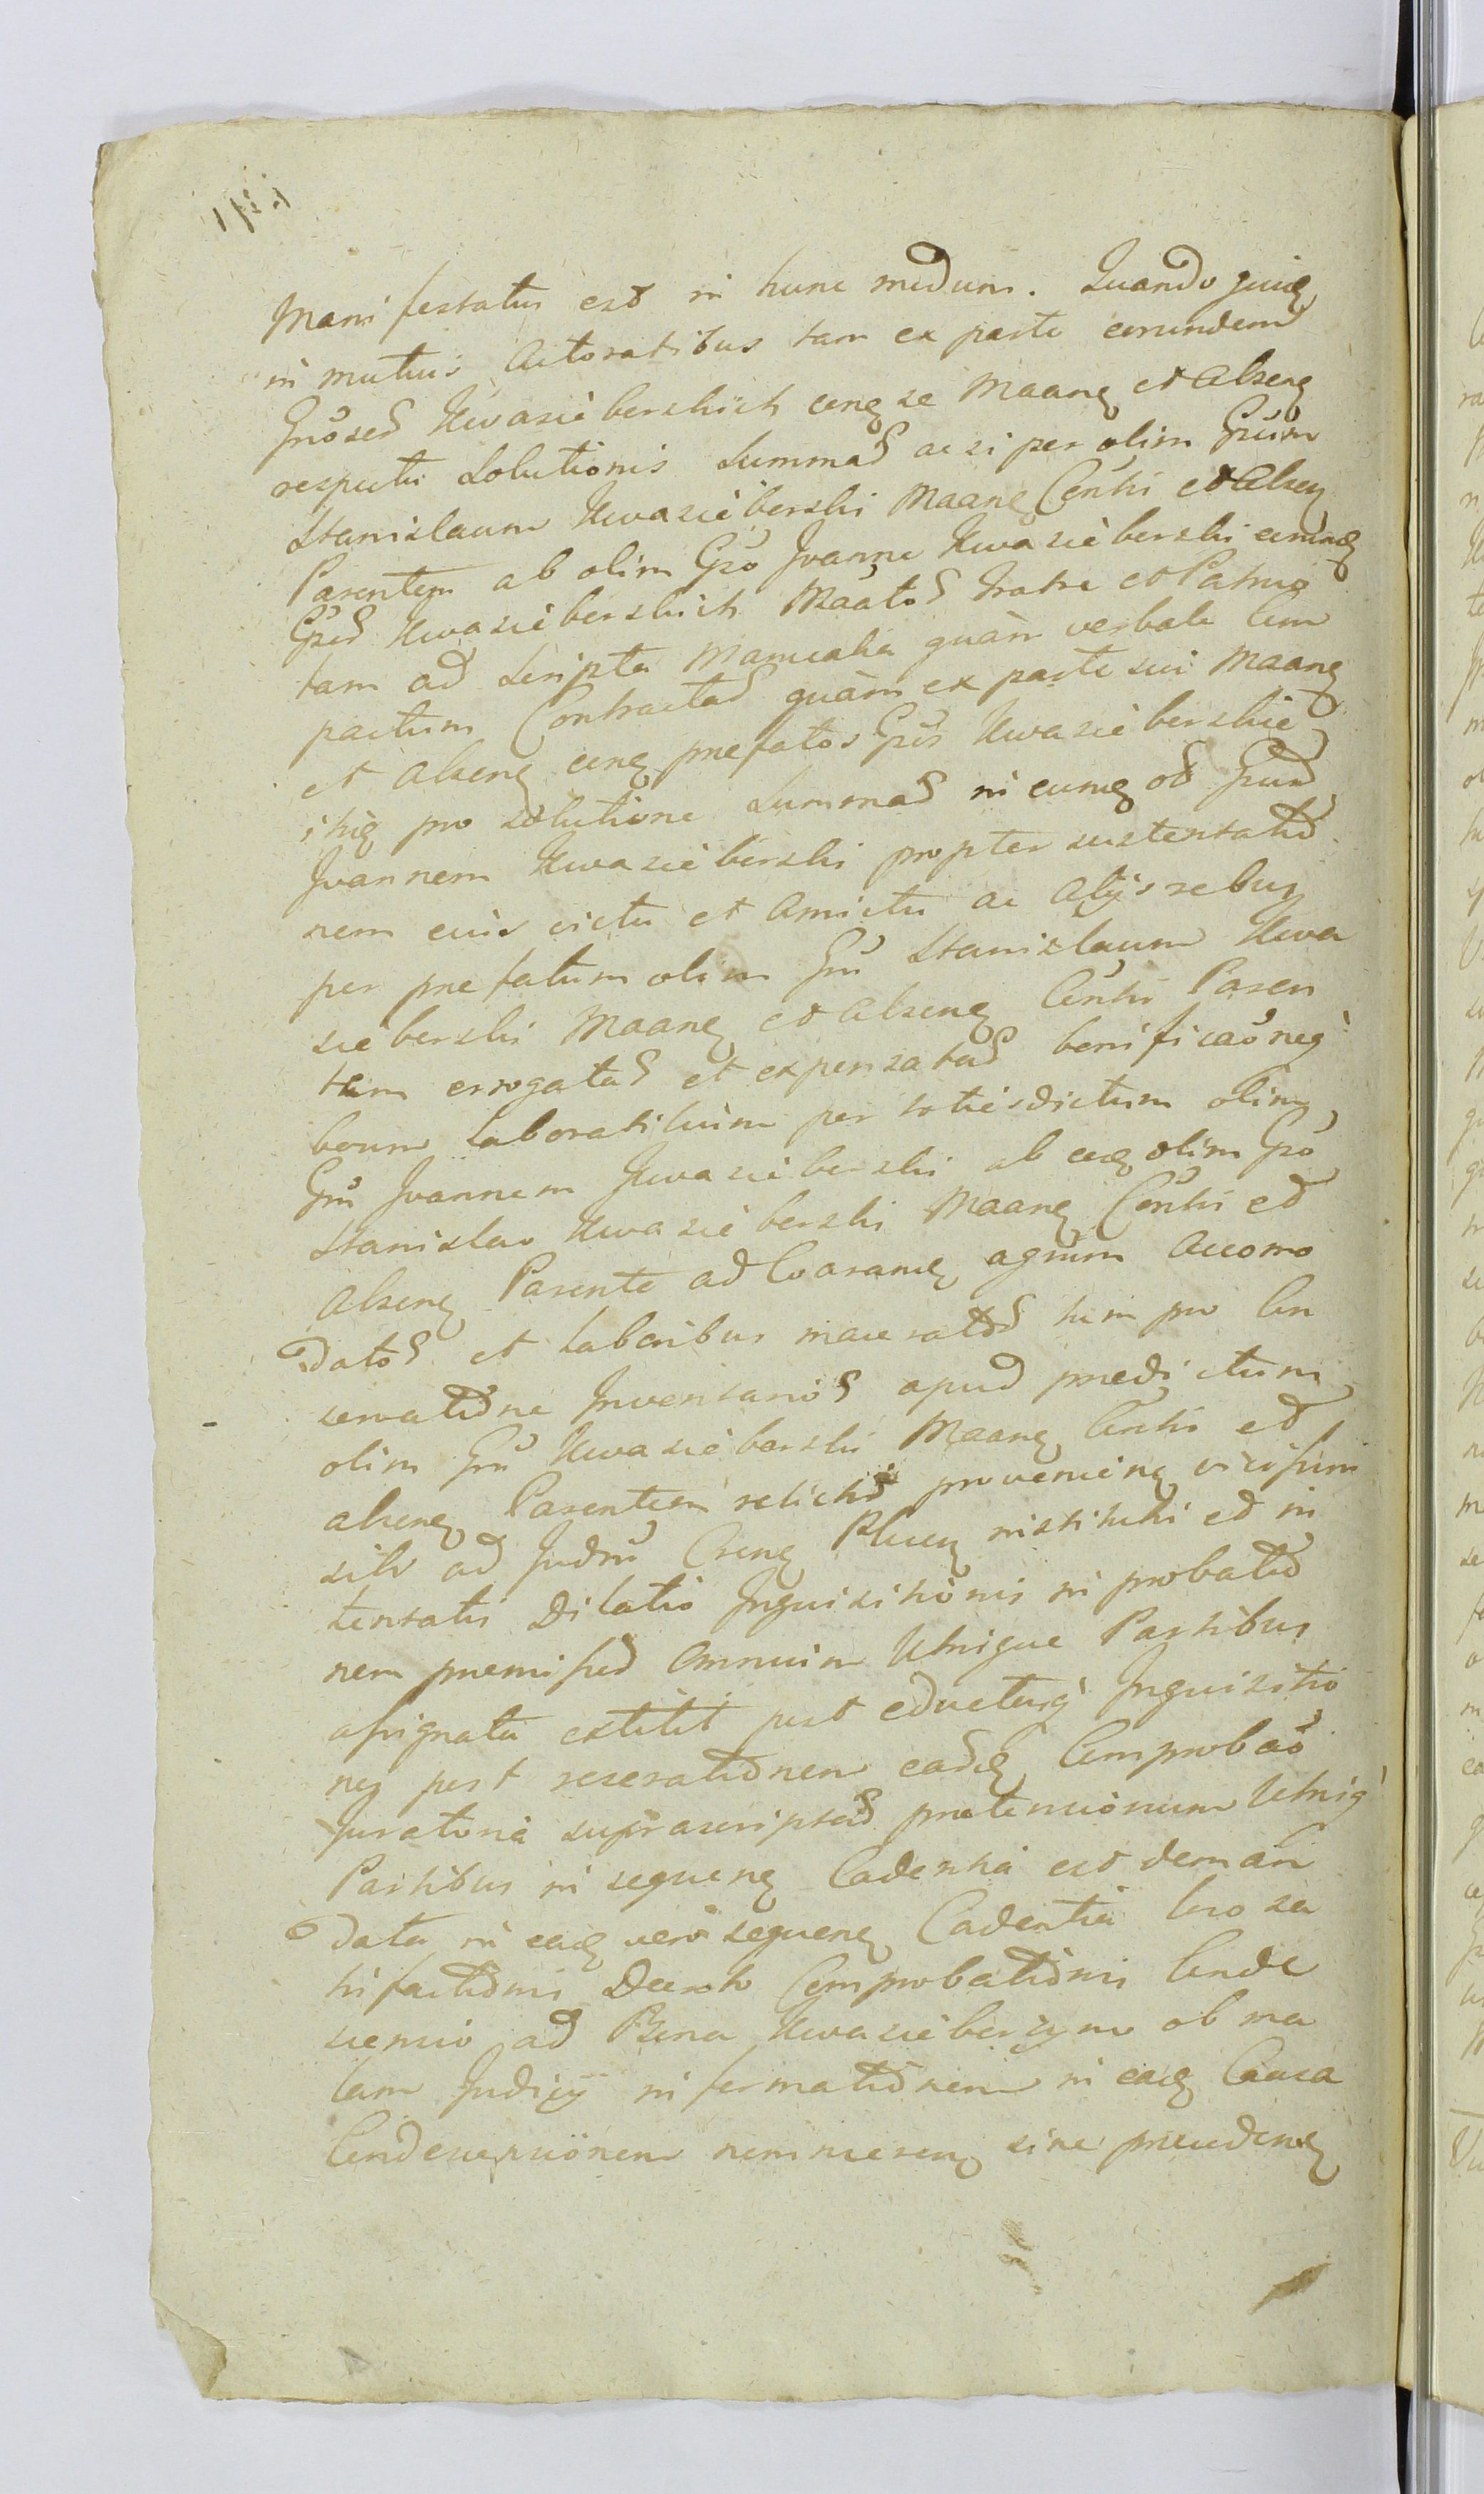 Manifestatus est in hunc modum. Quando quidę
in mutuis Actoratibus tam ex parte eorundem
Gnosed Kwasieberskich cong se Maang et abseng
respectu Solutionis Summad ac si per olim Gnum
Stanislaum Kwasieberski Maang Centri et Absen
Parentem ab olim Gno Joanne Kwasieberski
Gned Kwasieberskich Maatos Fratre et Patruo
tam ad Scripta Manualia quàm verbale Com
pactum Contractad quàm ex parte sui Maang
et absenę cong prefatos Gnos Kwasieberskie
itidę pro Solutione Summad in eumdę ob Gnud
Joannem Kwasieberski propter sustentatio
nem eius victu et Amictu ac Alijs rebus
per prefatum olim Gnu Stanislaum Kwa
sieberski Maang et Absenę Centri Paren
tem errogatas et expensatas benificaoneq
boum Laboratiluim per totiesdictum olim
Gnu Joannem Kwasieberski ab eodę olim Gno
Stanislao Kwasieberski Maang Centri et
Absenę Parente ad Coarandę agrum accomo
datos et Laboribus maceratos tum pro Con
servatione Inventarios apud predictum
olim Gnu Kwasieberski Maang Centri et
absenę Parentem relictis provenienę vicissim
sibi ad Judm Crenę Pluen institutis et in
tentatis Dilatio Inquisitionis in probatio
nem premissed Omnium Utrique Partibus
assignata extitit post eductasq Inquisitio
nes post reseratidnem eadę Comprobao
Juratoria suprascriptad pretensionum Utriq
Partibus in sequenę Cadentia est deman
data in eadę vero sequenę Cadentia loco sa
tisfactionis Decreto Comprobationis Conde
scensio ad Bona Kwasieberzyno ob ma
lam Judicij informationem in eadę Causa
Condescensionem non meren sine precudenę